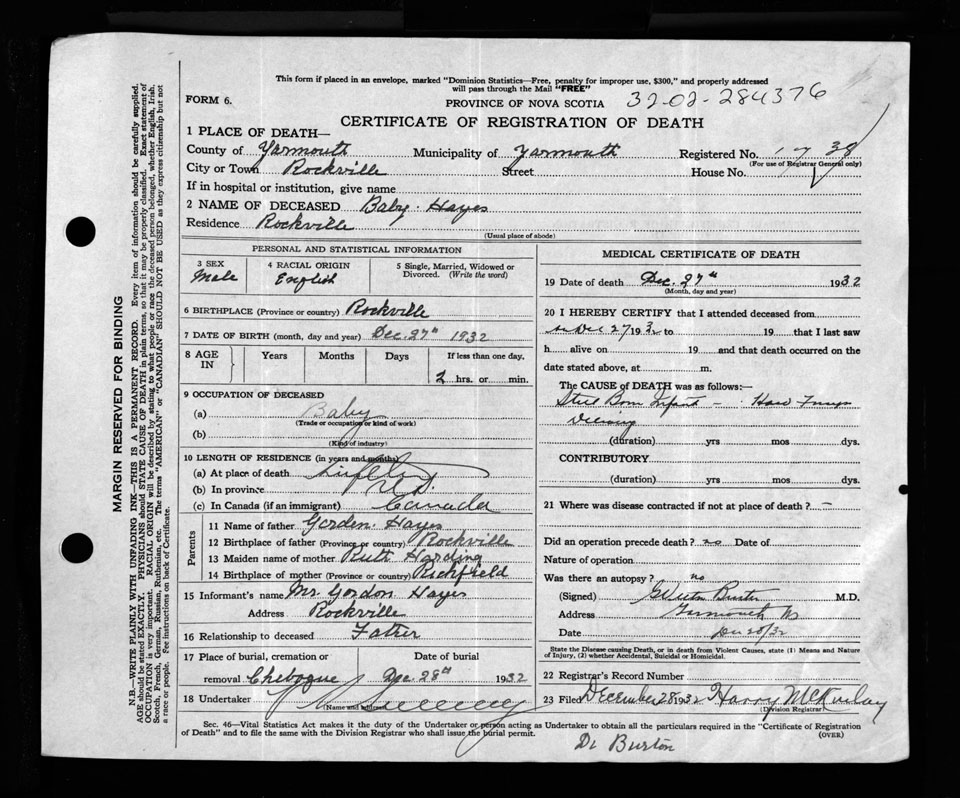 This form if placed in an envelope, marked "Dominion Statistics—Free, penalty for improper use, $300," and properly addressed
will pass through the Mail "FREE"
FORM 6.
PROVINCE OF NOVA SCOTIA 32-02-284376
CERTIFICATE OF REGISTRATION OF DEATH
1 PLACE OF DEATH—
County of Yarmouth Municipality of Yarmouth Registered No. 38
(For use of Registrar General only)
City or Town Rockville Street House No.
If in hospital or institution, give name
2 NAME OF DECEASED Baby Hayes
Residence Rockville
(Usual place of abode)
PERSONAL AND STATISTICAL INFORMATION
3 SEX
Male
4 RACIAL ORIGIN
English
5 Single, Married, Widowed or
Divorced. (Write the word)
6 BIRTHPLACE (Province or country) Rockville
7 DATE OF BIRTH (month, day and year) Dec. 27th 1932
8 AGE IN Years Months Days If less than one day,
2 hrs. or min.
9 OCCUPATION OF DECEASED
(a) Baby
(Trade or occupation or kind of work)
(b)
(Kind of industry)
10 LENGTH OF RESIDENCE (in years and months)
(a) At place of death
(b) In province
(c) In Canada (if an immigrant) Canada
Parents
11 Name of father Gorden Hayes
12 Birthplace of father (Province or country) Rockville
13 Maiden name of mother Ruth Harding
14 Birthplace of mother (Province or country) Richfield
15 Informant's name Mr Gordon Hayes
Address Rockville
16 Relationship to deceased Father
17 Place of burial, cremation or Date of burial
removal Chebogue Dec 28th 1932
18 Undertaker
(Name and address)
MEDICAL CERTIFICATE OF DEATH
19 Date of death Dec. 27th 1932
(Month, day and year)
20 I HEREBY CERTIFY that I attended deceased from
Dec 27 1932 to 19 that I last saw
h alive on 19 and that death occurred on the
date stated above, at m.
The CAUSE of DEATH was as follows:—
Still Born Infant —
(duration) yrs mos dys.
CONTRIBUTORY
(duration) yrs mos dys.
21 Where was disease contracted if not at place of death? —
Did an operation precede death? no Date of
Nature of operation
Was there an autopsy? no
(Signed) Burton M.D.
Address Yarmouth NS
Date Dec 28/32
State the Disease causing Death, or in death from Violent Causes, state (1) Means and Nature
of Injury, (2) whether Accidental, Suicidal or Homicidal.
22 Registrar's Record Number
23 Filed December 28 1932 Harry McKinlay
(Division Registrar)
Sec. 46—Vital Statistics Act makes it the duty of the Undertaker or person acting as Undertaker to obtain all the particulars required in the "Certificate of Registration
of Death" and to file the same with the Division Registrar who shall issue the burial permit.
(OVER)
Dr Burton
MARGIN RESERVED FOR BINDING
N.B.—WRITE PLAINLY WITH UNFADING INK—THIS IS A PERMANENT RECORD. Every item of information should be carefully supplied.
AGE should be stated EXACTLY. PHYSICIANS should STATE CAUSE OF DEATH in plain terms, so that it may be properly classified. Exact statement of
OCCUPATION is very important. RACIAL ORIGIN will be described by stating to what people or race the deceased person belonged, whether English, Irish,
Scotch, French, German, Russian, Ruthenian, etc. The terms "AMERICAN" or "CANADIAN" SHOULD NOT BE USED as they express citizenship but not
a race or people. See instructions on back of Certificate.